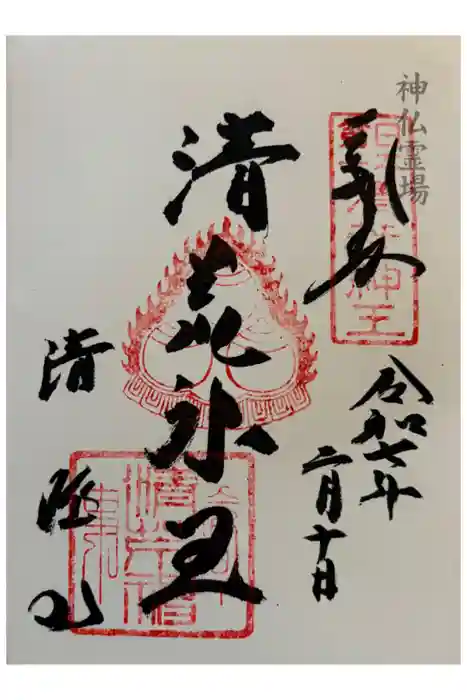 神仏霊場
奉拝
令和七年
二月十日
清荒神王
清澄寺